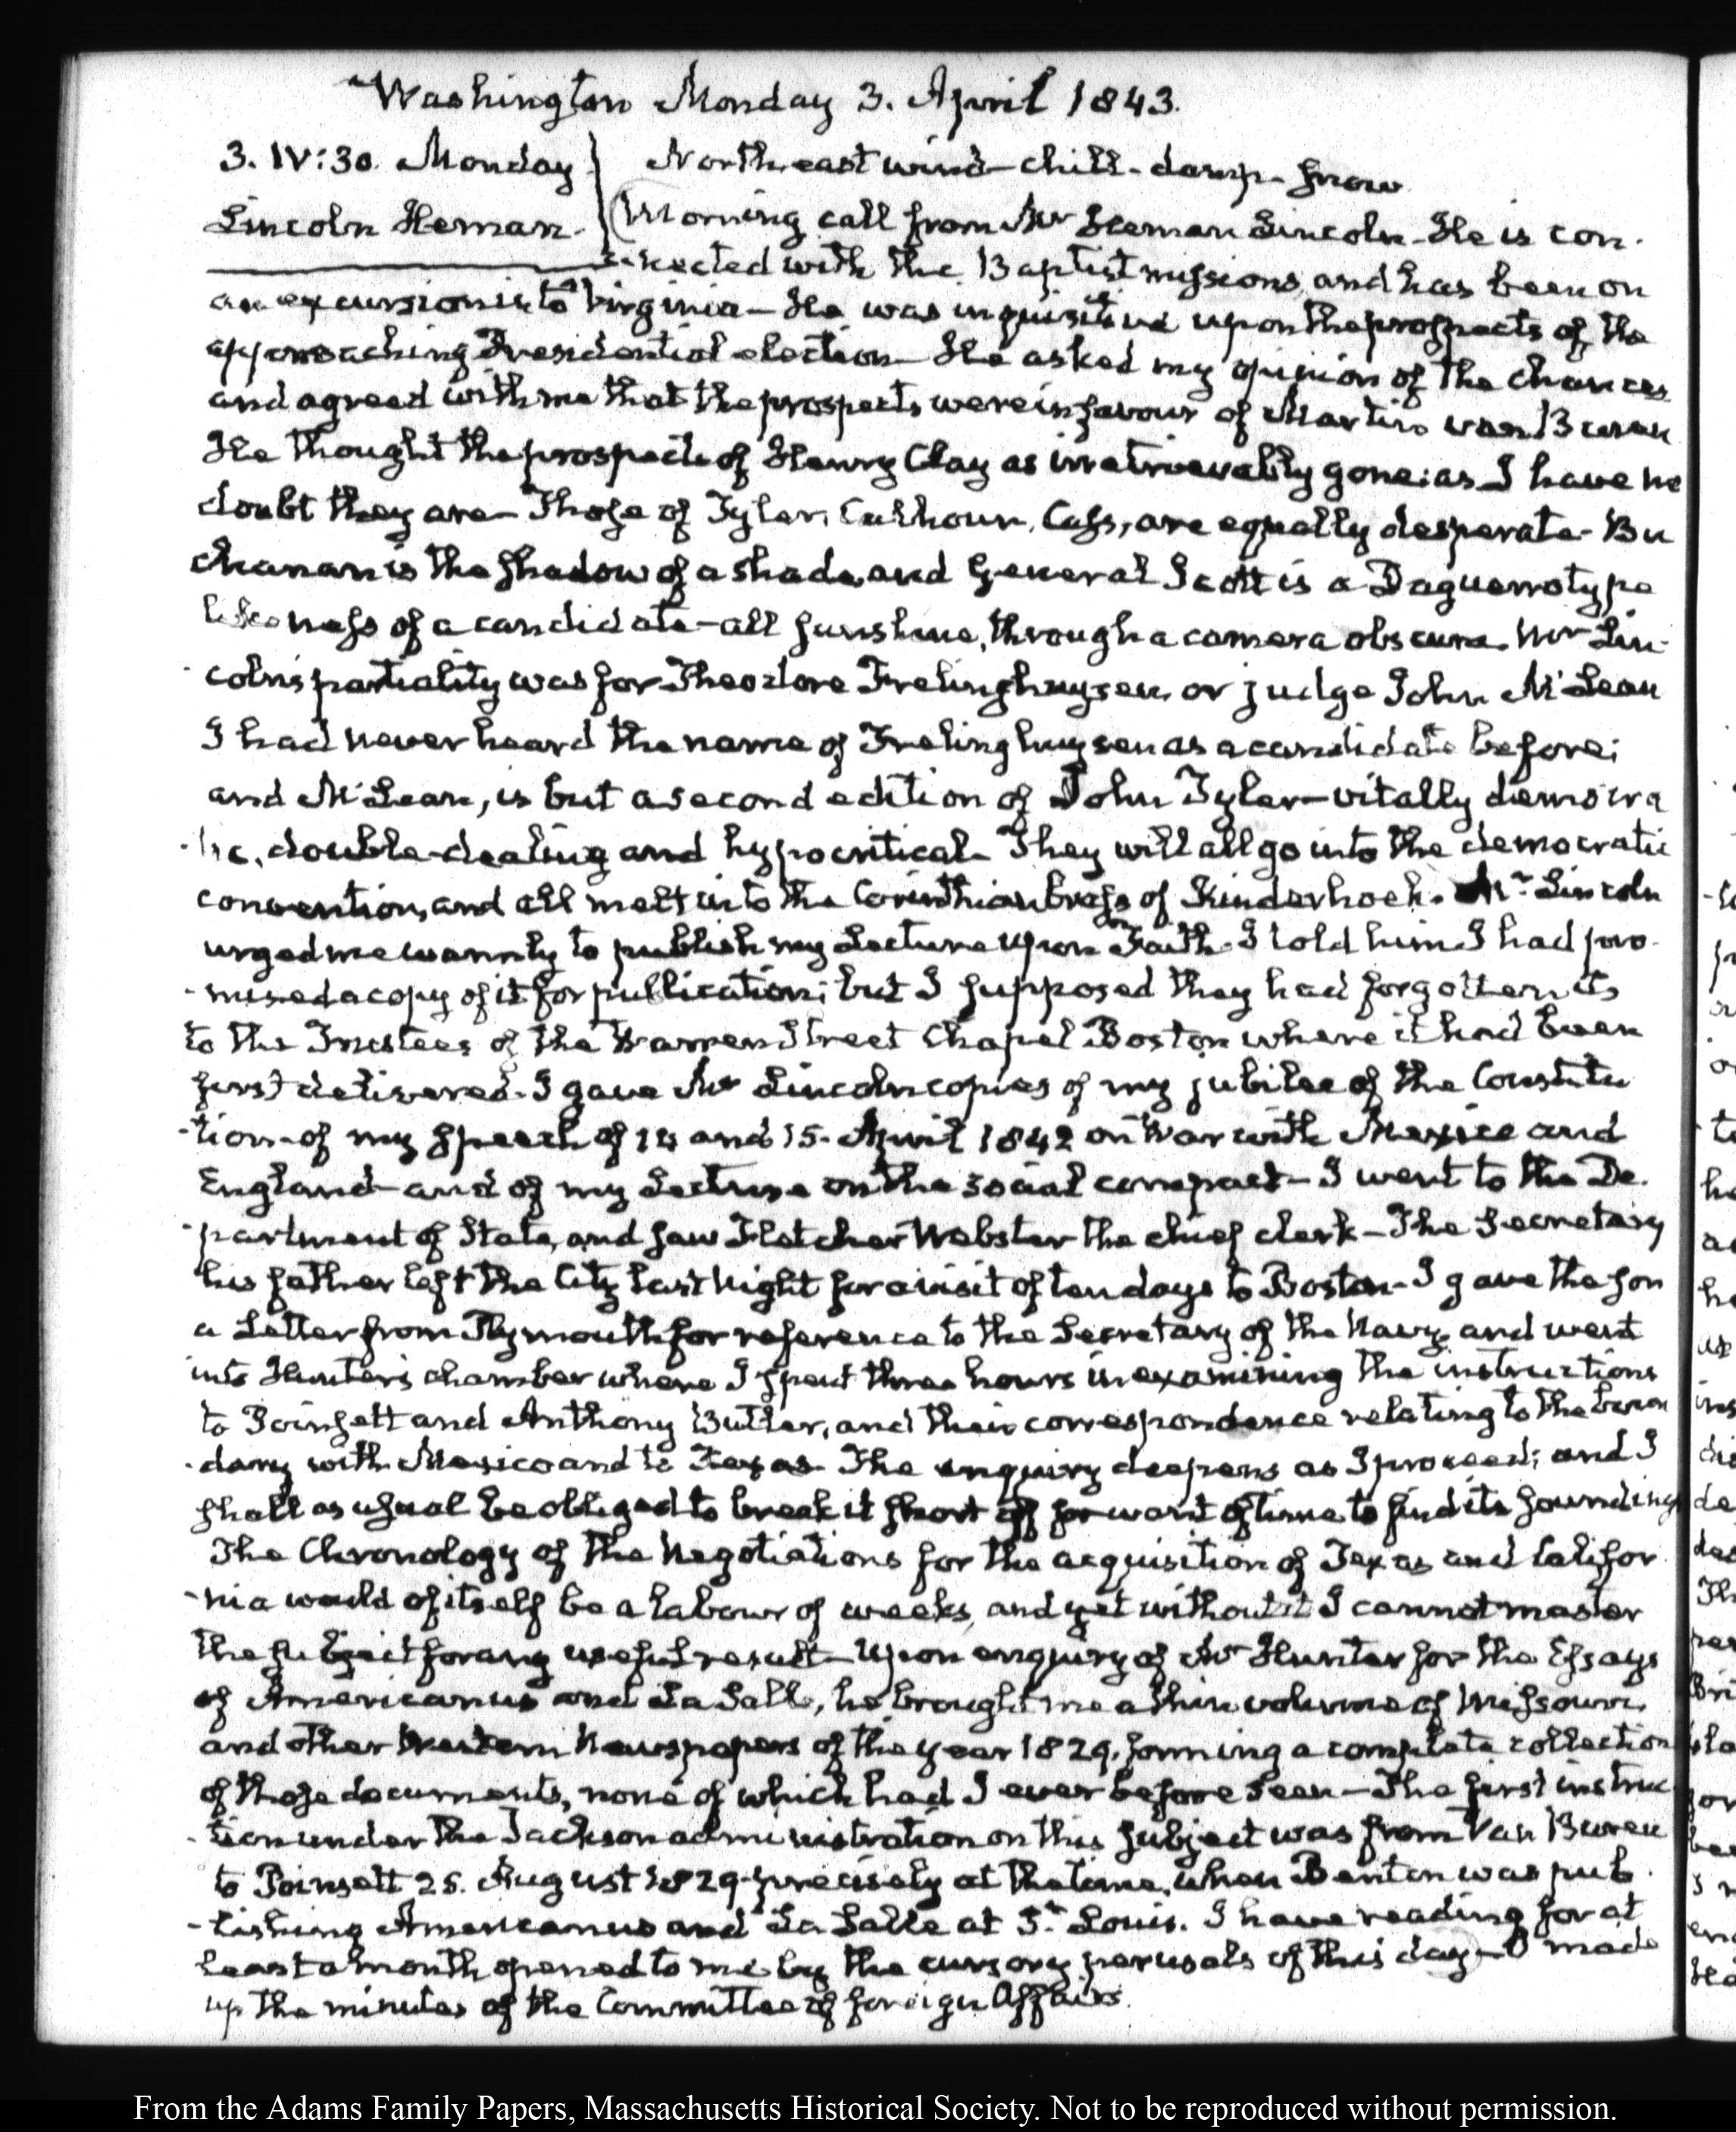 Washington Monday 3. April 1843.
3. IV:30. Monday
Lincoln Heman.
North east wind - chill - damp - snow
Morning call from Mr Heman Lincoln - He is con-
nected with the Baptist missions, and has been on
an excursion into Virginia - He was inquisitive upon the prospects of the
approaching Presidential election - He asked my opinion of the chances
and agreed with me that the prospects were in favour of Martin van Buren
He thought the prospects of Henry Clay as irretrievably gone: as I have no
doubt they are - Those of Tyler, Calhoun, Cass, are equally desperate - Bu
chanan is the shadow of a shade, and General Scott is a Daguerrotype
likeness of a candidate - all sunshine, through a camera obscura. Mr Lin-
coln's partiality was for Theodore Frelinghuysen, or judge John McLean
I had never heard the name of Frelinghuysen as a candidate before;
and McLean, is but a second edition of John Tyler - vitally democra
tic, double-dealing and hypocritical - They will all go into the democratic
convention, and all melt into the Corinthian brass of Kinderhook. Mr Lincoln
urged me warmly to publish my Lecture upon Faith - I told him I had pro-
-mised a copy of it for publication; but I supposed they had forgotten it,
to the Trustees of the Warren Street Chapel Boston where it had been
first delivered. I gave Mr Lincoln copies of my jubilee of the Constitu
-tion - of my speech of 14 and 15. April 1842 on War with Mexico and
England - and of my Lecture on the social compact - I went to the De-
-partment of State, and saw Fletcher Webster the chief clerk - The Secretary
his father left the City last Night for a visit of ten days to Boston - I gave the son
a Letter from Plymouth for reference to the Secretary of the Navy, and went
into Hunter's chamber where I spent three hours in examining the instructions
to Poinsett and Anthony Butler, and their correspondence relating to the boun
-dary with Mexico and to Texas - The enquiry deepens as I proceed; and I
shall as usual be obliged to break it short off for want of time to find its soundings
The Chronology of the Negotiations for the acquisition of Texas and Califor
-nia would of itself be a labour of weeks, and yet without it I cannot master
the subject for any useful result - Upon enquiry of Mr Hunter for the Essays
of Americanus and La Salle, he brought me a thin volume of Missouri,
and other Western Newspapers of the year 1829. forming a complete collection
of those documents, none of which had I ever before seen - The first instruc
-tion under the Jackson administration on this subject was from Van Buren
to Poinsett 25. August 1829 - precisely at the time, when Benton was pub
-lishing Americanus and La Salle at St. Louis. I have reading for at
least a month opened to me by the cursory perusals of this day - I made
up the minutes of the Committee of foreign Affairs.
From the Adams Family Papers, Massachusetts Historical Society. Not to be reproduced without permission.